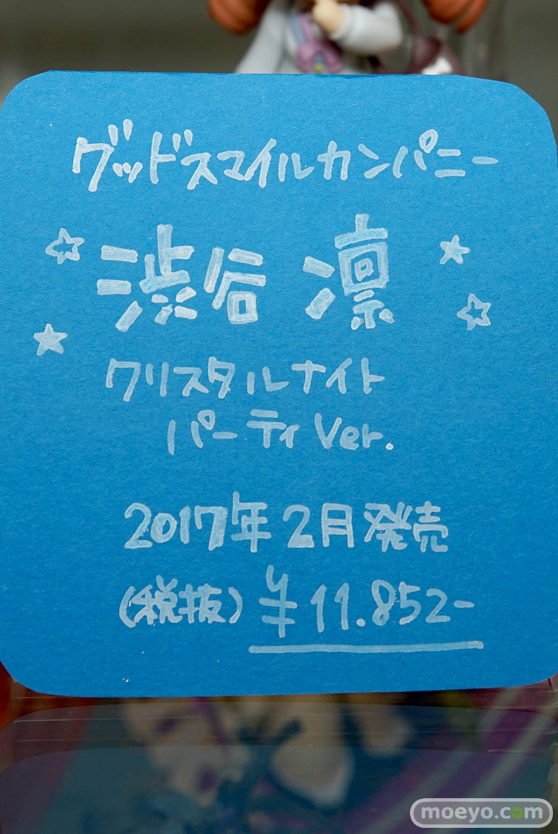 グッドスマイルカンパニー
☆★渋谷 凛★☆
クリスタルナイト
パーティ Ver.
2017年2月発売
(税抜) ¥11.852-
moeyo.com